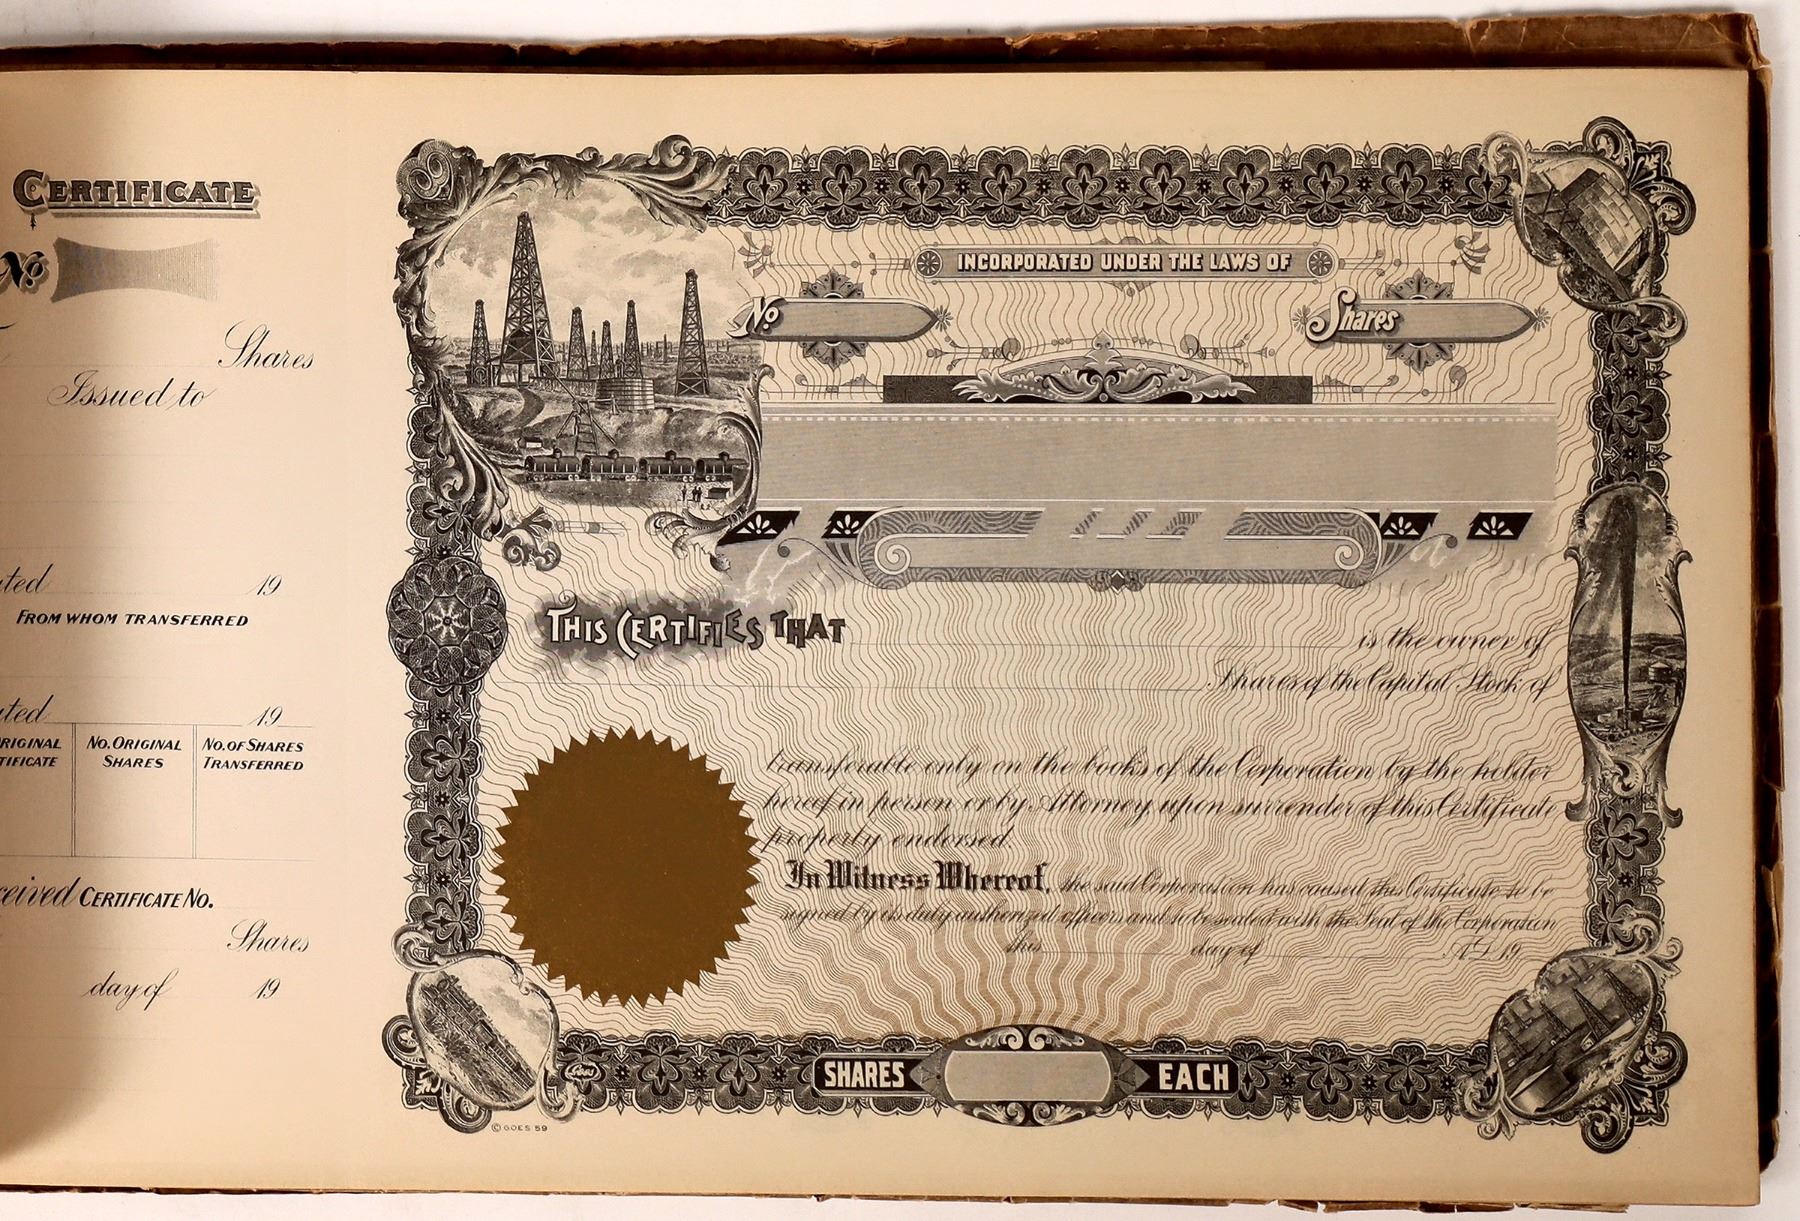 CERTIFICATE
No
Shares
Issued to
19
FROM WHOM TRANSFERRED
19
NO. ORIGINAL SHARES
NO. OF SHARES TRANSFERRED
CERTIFICATE NO.
Shares
day of 19
INCORPORATED UNDER THE LAWS OF
No
Shares
THIS CERTIFIES THAT is the owner of
Shares of the Capital Stock of
transferable only on the books of the Corporation by the holder
hereof in person or by Attorney, upon surrender of this Certificate
properly endorsed.
In Witness Whereof, the said Corporation has caused this Certificate to be
signed by its duly authorized officers and to be sealed with the Seal of the Corporation
this day of A.D. 19
SHARES EACH
Goes
© GOES 59